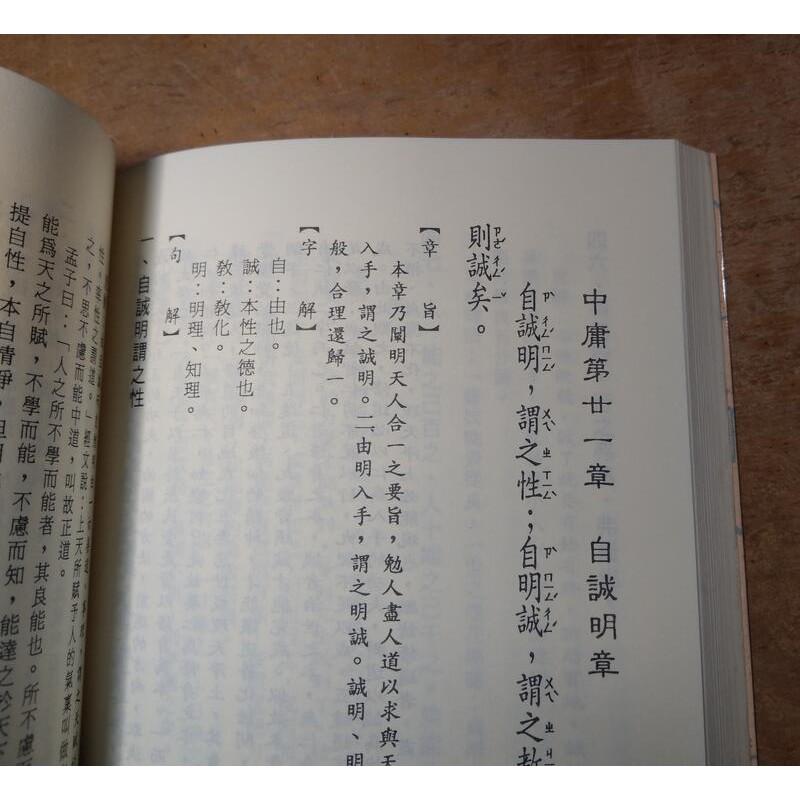 中庸第廿一章　自誠明章
自誠明，謂之性；自明誠，謂之教
則誠矣。
【章　旨】
本章乃闡明天人合一之要旨，勉人盡人道以求與天
入手，謂之誠明。二、由明入手，謂之明誠。誠明、明
般，合理還歸一。
【字　解】
自：由也。
誠：本性之德也。
教：教化。
明：明理、知理。
【句　解】
一、自誠明謂之性
性，率性之謂道。」經文說：上天所賦予人的氣稟叫做
之，不思不慮而能中道，叫故正道。
孟子曰：「人之所不學而能者，其良能也。所不慮
能爲天之所賦，不學而能，不慮而知，能達之於天
提自性，本自清淨，但